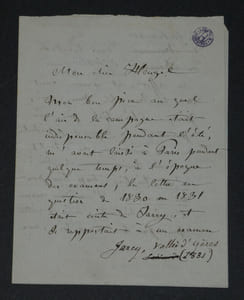 Mon cher Heugel
Mon bon père au quel
l'air de la campagne était
indispensable pendant l'été,
m'avait laissé à Paris pendant
quelque temps, à l'époque
des examens; la lettre en
question de 1830 ou 1831
était datée de Jarcy, et
se rapportait à un examen
Jarcy, Vallée d'Yères
(1831)